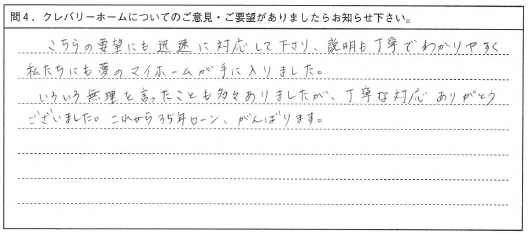 問4．クレバリーホームについてのご意見・ご要望がありましたらお知らせ下さい。
こちらの要望にも迅速に対応して下さり、説明も丁寧でわかりやすく
私たちにも夢のマイホームが手に入りました。
いろいろ無理を言ったことも多々ありましたが、丁寧な対応ありがとう
ございました。これから35年ローン、がんばります。